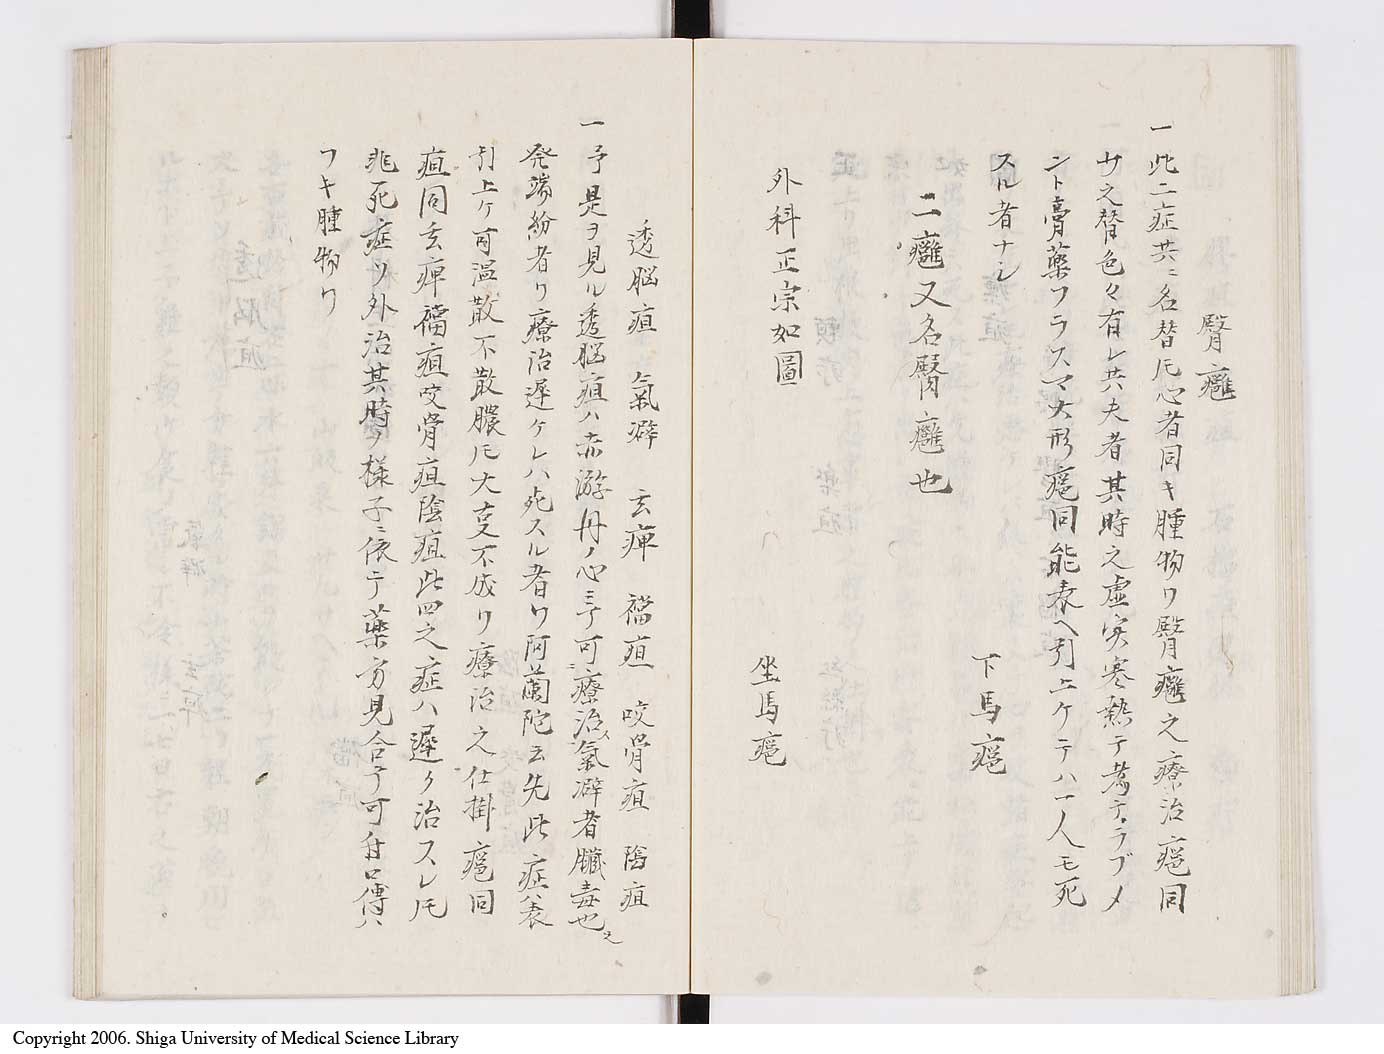 臀癰
一此二症共ニ名替𪜈心者同キ腫物ワ臀癰之療治瘟同
サ之替色々有レ共夫者其時之虚実寒熱テ考テラブメ
ント膏薬フラスマ大形瘟同能表ヘ引上ケテハ一人モ死
スル者ナシ
下馬瘟
二癰又名腎癰也
外科正宗如圖
坐馬瘟
透脳疽 氣癖 玄痺 襠疽 咬骨疽 陰疽
一予是ヲ見ル透脳疽ハ赤游丹ノ心ミテ可療治氣癖者臓毒也之
発端紛者リ療治遅ケレハ死スル者ワ阿蘭陀云先此症ハ表
引上ケ可温散不散膿𪜈大支不成リ療治之仕掛瘟同
疽同玄痺襠疽咬骨疽陰疽此四之症ハ遅ク治スレ𪜈
非死症リ外治其時ノ様子ニ依テ薬方見合テ可用口傳ハ
フキ腫物ワ
Copyright 2006. Shiga University of Medical Science Library